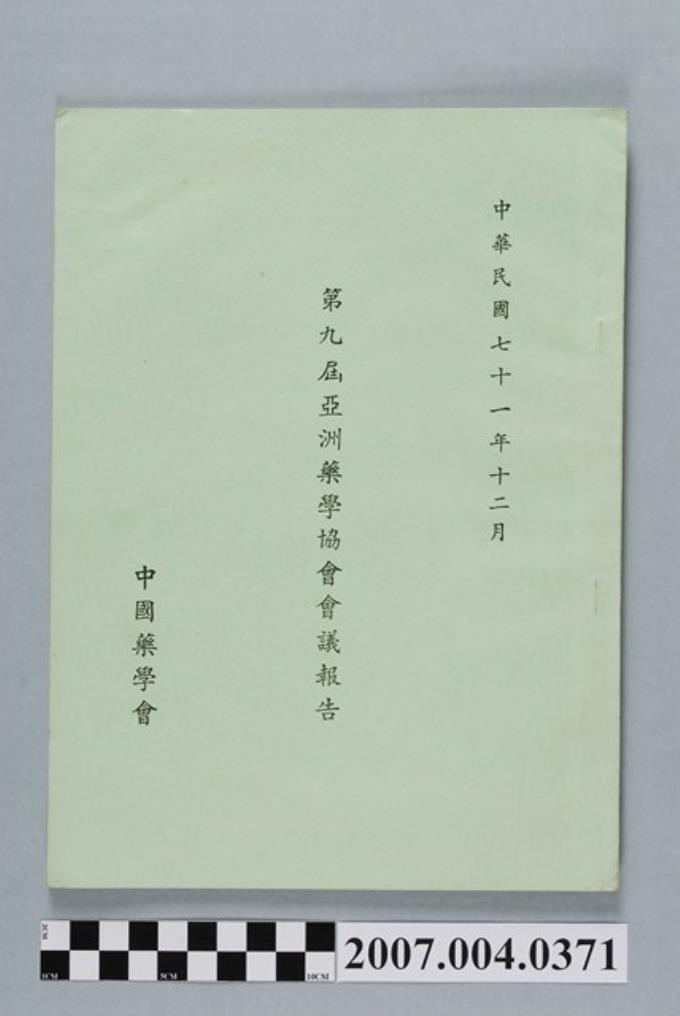 中華民國七十一年十二月
第九屆亞洲藥學協會會議報告
中國藥學會
2CM
1CM
5CM
10CM
2007.004.0371